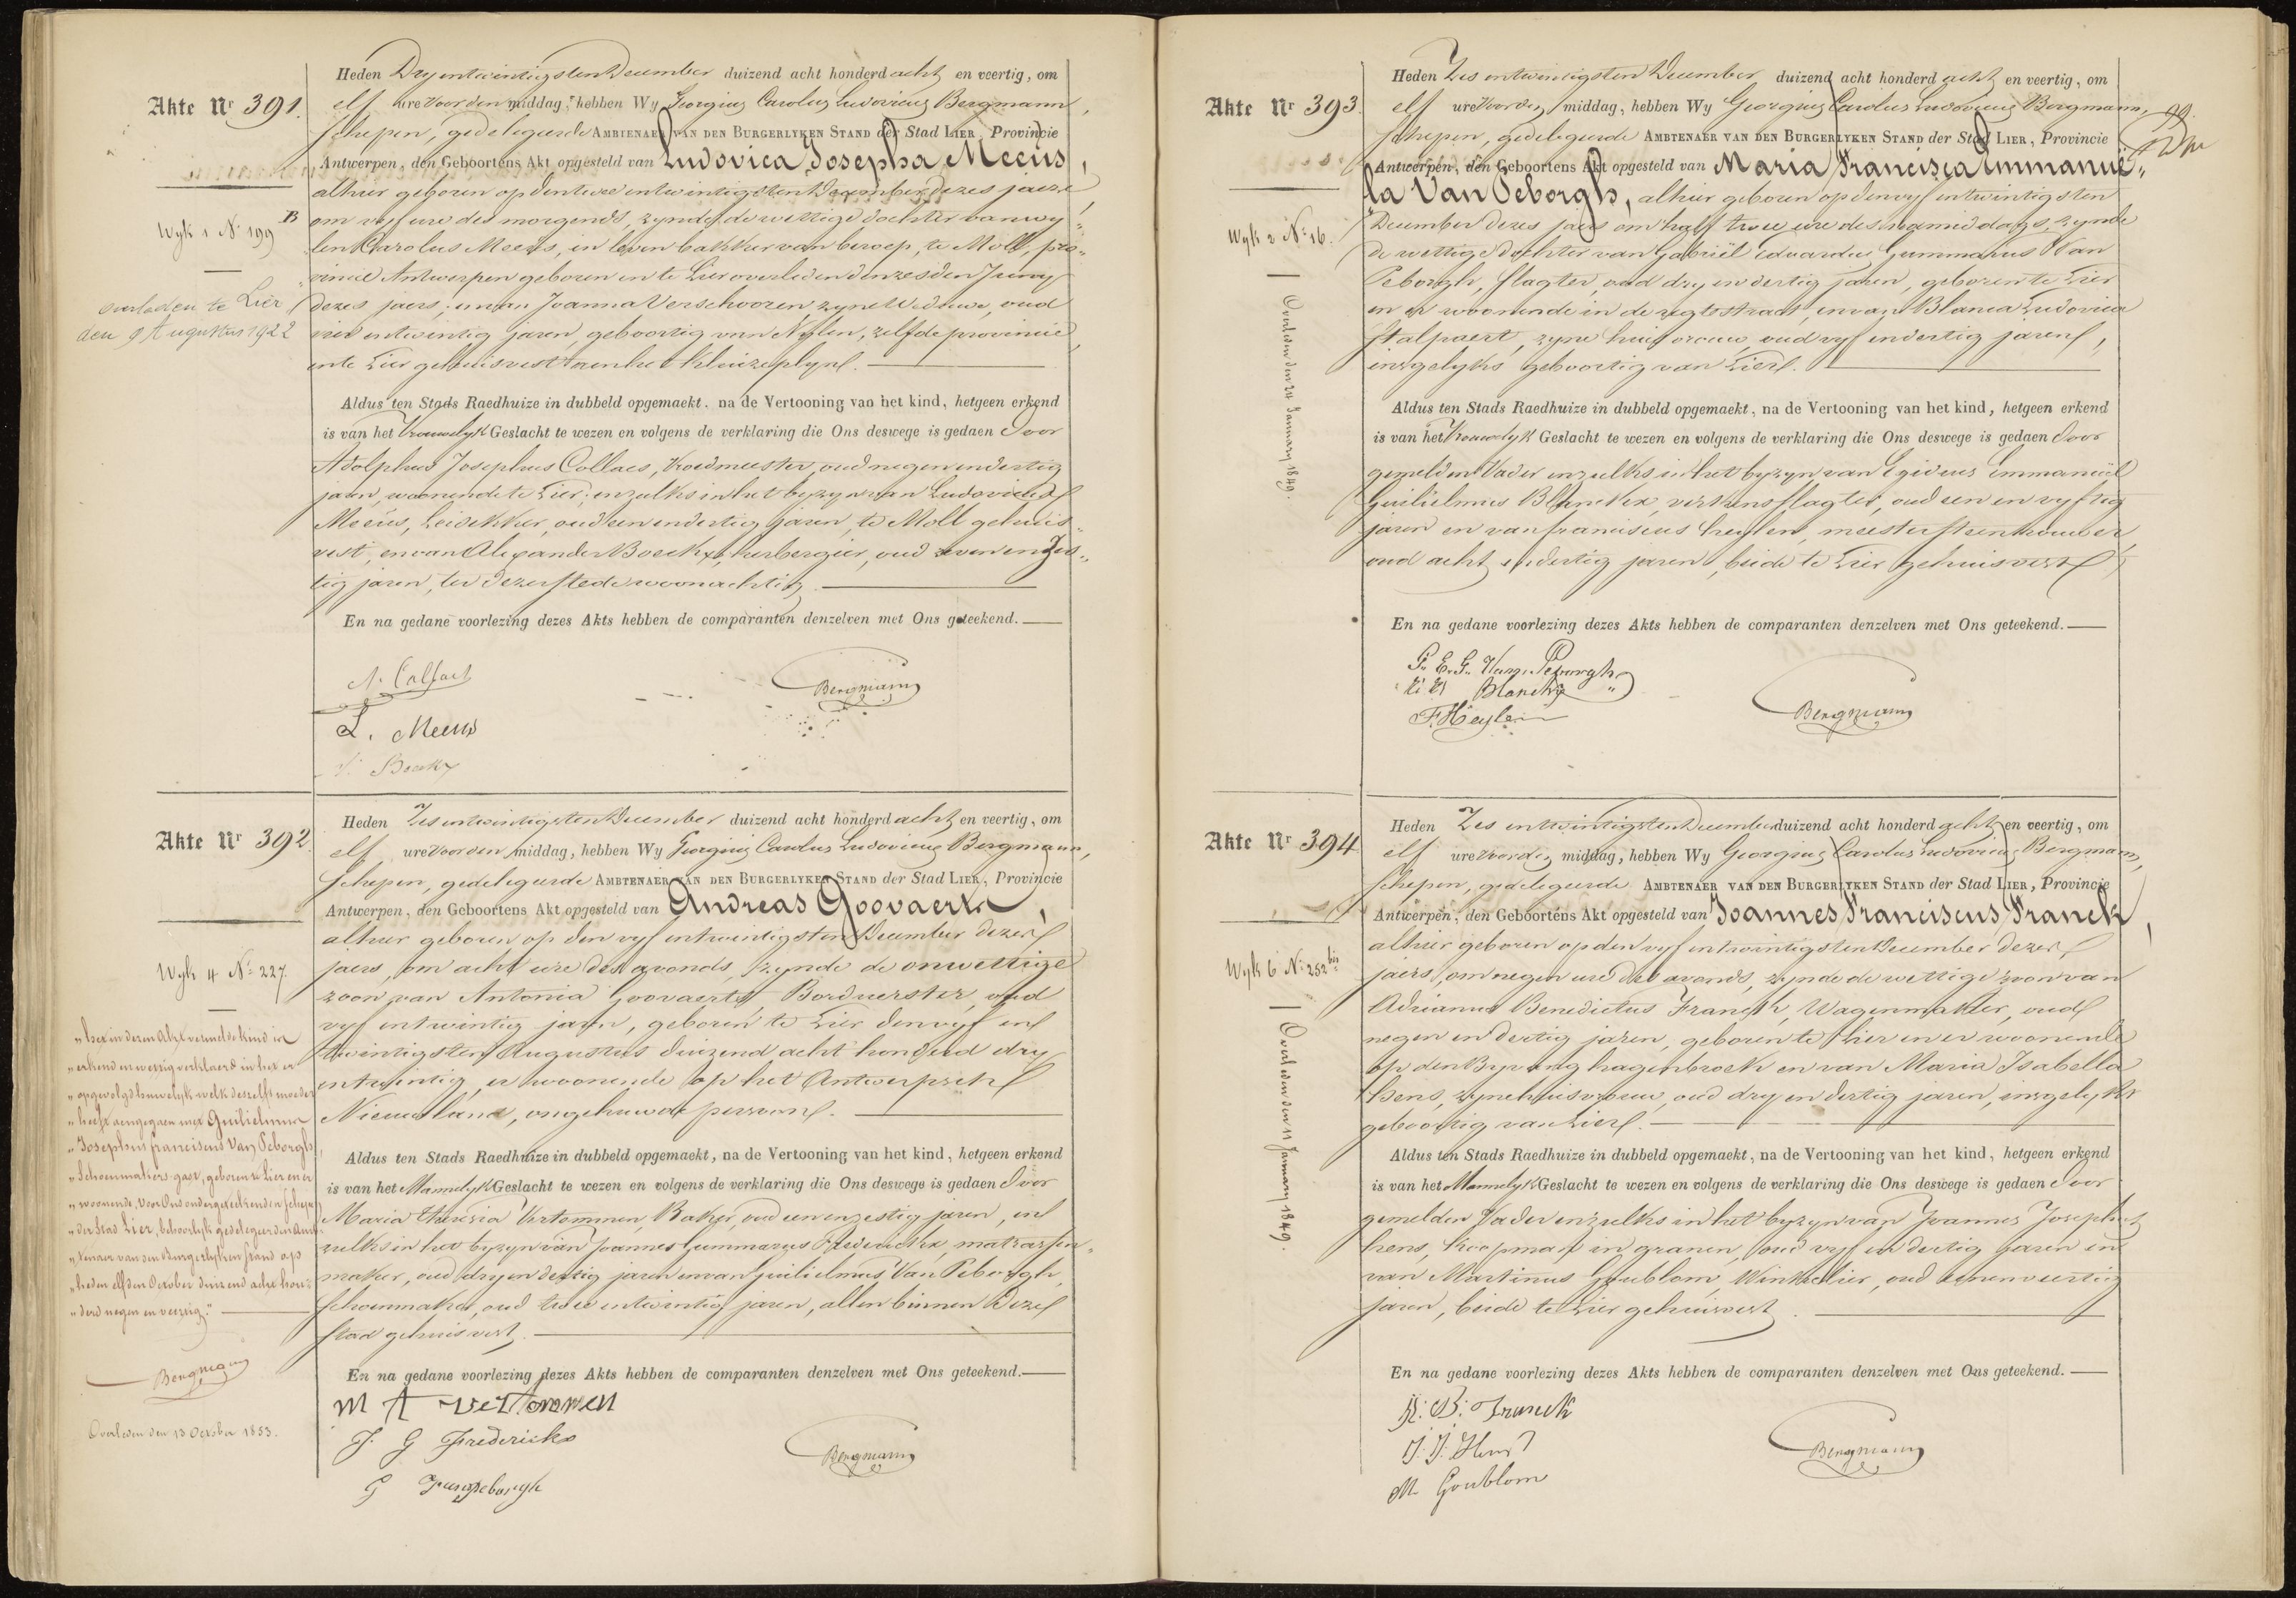 Akte Nr 391.
Wyk 1 No 199 B
overleden te Lier
den 9 Augustus 1922
Heden Dry entwintigsten December duizend acht honderd acht en veertig, om
elf ure voor den middag, hebben Wy Georgius Carolus Ludovicus Bergmann,
schepen, gedelegeerde AMBTENAER VAN DEN BURGERLYKEN STAND der Stad LIER, Provincie
Antwerpen, den Geboortens Akt opgesteld van Ludovica Josepha Meeüs,
alhier geboren op den twee entwintigsten December dezes jaers
om vyf ure des morgends, zynde de wettige dochter van wy„
len Carolus Meeüs, in leven bakker van beroep, te Moll, pro„
vincie Antwerpen geboren en te Lier overleden den zesden Juny
dezes jaers, en van Joanna Verschooren, zyne Weduwe, oud
vier entwintig jaren, geboortig van Nylen, zelfde provincie
en te Lier gehuisvest aen het Kluizeplyn.
Aldus ten Stads Raedhuize in dubbeld opgemaekt, na de Vertooning van het kind, hetgeen erkend
is van het Vrouwelyk Geslacht te wezen en volgens de verklaring die Ons deswege is gedaen door
Adolphus Josephus Collaes, Vroedmeester, oud negen en dertig
jaren, woonende te Lier; en zulks in het byzyn van Ludovicus
Meeüs, Leidekker, oud een en dertig jaren, te Moll gehuis„
vest, en van Alexander Boeckx, herbergier, oud zeven en zes„
tig jaren, ter dezer stede woonachtig.
En na gedane voorlezing dezes Akts hebben de comparanten denzelven met Ons geteekend.
Bergmann
L. Meeus
Boeckx
Akte Nr 392.
Wyk 4 No 227.
„het in dezen Akt vermelde kind is
„erkend en wettig verklaerd in het er
„opgevolgd huwelyk welk deszelfs moeder
„heeft aengegaen met Guilielmus
„Josephus franciscus Van Peborgh,
„Schoenmakers gast, geboren te Lier en er
„woonende, voor Ons ondergeteekenden schepen
„der Stad Lier, behoorlyk gedelegeerden Amb„
„tenaer van den Burgerlyken stand op
„heden elfden October duizend acht hon„
„derd negen en veertig."
Bergmann
Overleden den 13 October 1853.
Heden Zes entwintigsten December duizend acht honderd acht en veertig, om
elf ure voor den middag, hebben Wy Georgius Carolus Ludovicus Bergmann,
schepen, gedelegeerde AMBTENAER VAN DEN BURGERLYKEN STAND der Stad LIER, Provincie
Antwerpen, den Geboortens Akt opgesteld van Andreas Goovaerts,
alhier geboren op den vyf entwintigsten December dezes
jaers, om acht ure des avonds, zynde de onwettige
zoon van Antonia Goovaerts, Borduerster, oud
vyf entwintig jaren, geboren te Lier den vyf en
twintigsten Augustus duizend acht honderd dry
entwintig, er woonende op het Antwerpsch
Nieuwland, ongehuwde persoon.
Aldus ten Stads Raedhuize in dubbeld opgemaekt, na de Vertooning van het kind, hetgeen erkend
is van het Mannelyk Geslacht te wezen en volgens de verklaring die Ons deswege is gedaen door
Maria Theresia Vertommen, Baker, oud een en zestig jaren, en
zulks in het byzyn van Joannes Gummarus Frederickx, matrassen„
maker, oud dry en dertig jaren en van Guilielmus Van Peborgh,
schoenmaker, oud twee entwintig jaren, allen binnen deze
stad gehuisvest.
En na gedane voorlezing dezes Akts hebben de comparanten denzelven met Ons geteekend.
M T Vertommen
J. G Frederickx
G Vanpeborgh
Bergmann
Akte Nr 393.
Wyk 2 No 16.
Overleden den 24 January 1849.
Heden Zes entwintigsten December duizend acht honderd acht en veertig, om
elf ure voor den middag, hebben Wy Georgius Carolus Ludovicus Bergmann,
schepen, gedelegeerde AMBTENAER VAN DEN BURGERLYKEN STAND der Stad LIER, Provincie
Antwerpen, den Geboortens Akt opgesteld van Maria Francisca Emmanue„
la Van Peborgh, alhier geboren op den vyf entwintigsten
December dezes jaers om half twee ure des namiddags, zynde
de wettige dochter van Gabriël Eduardus Gummarus Van
Peborgh, slagter, oud dry en dertig jaren, geboren te Lier
en er woonende in de regtestraet, en van Blanca Ludovica
Stalpaert, zyne huisvrouw, oud vyf en dertig jaren,
insgelyks geboortig van Lier.
Aldus ten Stads Raedhuize in dubbeld opgemaekt, na de Vertooning van het kind, hetgeen erkend
is van het Vrouwelyk Geslacht te wezen en volgens de verklaring die Ons deswege is gedaen door
gemelden Vader en zulks in het byzyn van Egidius Emmanuël
Guilielmus Blanckx, verkensslagter, oud een en vyftig
jaren en van franciscus heylen, meester steenhouwer
oud acht en dertig jaren, beide te Lier gehuisvest
En na gedane voorlezing dezes Akts hebben de comparanten denzelven met Ons geteekend.
G. E. G. Van Peborgh
Blanckx
F. Heylen
Bergmann
Akte Nr 394
Wyk 6 No 252 bis
Overleden den 11 January 1849.
Heden Zes entwintigsten December duizend acht honderd acht en veertig, om
elf ure voor den middag, hebben Wy Georgius Carolus Ludovicus Bergmann,
schepen, gedelegeerde AMBTENAER VAN DEN BURGERLYKEN STAND der Stad LIER, Provincie
Antwerpen, den Geboortens Akt opgesteld van Joannes Franciscus Franck,
alhier geboren op den vyf entwintigsten December dezes
jaers, om negen ure des avonds, zynde de wettige zoon van
Adrianus Benedictus Franck, Wagenmaker, oud
negen en dertig jaren, geboren te Lier en er woonende
op den Byvang hagenbroek en van Maria Isabella
hens, zyne huisvrouw, oud dry en dertig jaren, insgelyks
geboortig van Lier.
Aldus ten Stads Raedhuize in dubbeld opgemaekt, na de Vertooning van het kind, hetgeen erkend
is van het Mannelyk Geslacht te wezen en volgens de verklaring die Ons deswege is gedaen door
gemelden Vader en zulks in het byzyn van Joannes Josephus
hens, koopman in granen, oud vyf en dertig jaren en
van Martinus Goublom, Winkelier, oud eenenveertig
jaren, beide te Lier gehuisvest.
En na gedane voorlezing dezes Akts hebben de comparanten denzelven met Ons geteekend.
A. B. Franck
J. J. Hens
M. Goublom
Bergmann